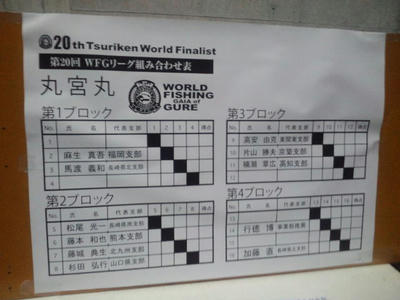 20th Tsuriken World Finalist
第20回 WFGリーグ組み合わせ表
丸宮丸
WORLD FISHING
GAIA of
GURE
第1ブロック
No. 氏 名 代表支部 1 2 3 4 得点
1
2 麻生 真吾 福岡支部
3 馬渡 義和 長崎県北支部
4
第2ブロック
No. 氏 名 代表支部 5 6 7 8 得点
5 松尾 光一 長崎県南支部
6 藤本 和也 熊本支部
7 藤城 典生 北九州支部
8 杉田 弘行 山口県支部
第3ブロック
No. 氏 名 代表支部 9 10 11 12 得点
9 高安 由克 東関東支部
10 片山 勝夫 京築支部
11 横瀬 章広 高知支部
12
第4ブロック
No. 氏 名 代表支部 13 14 15 16 得点
13
14 行徳 博
15
16 加藤 直 長崎県北支部